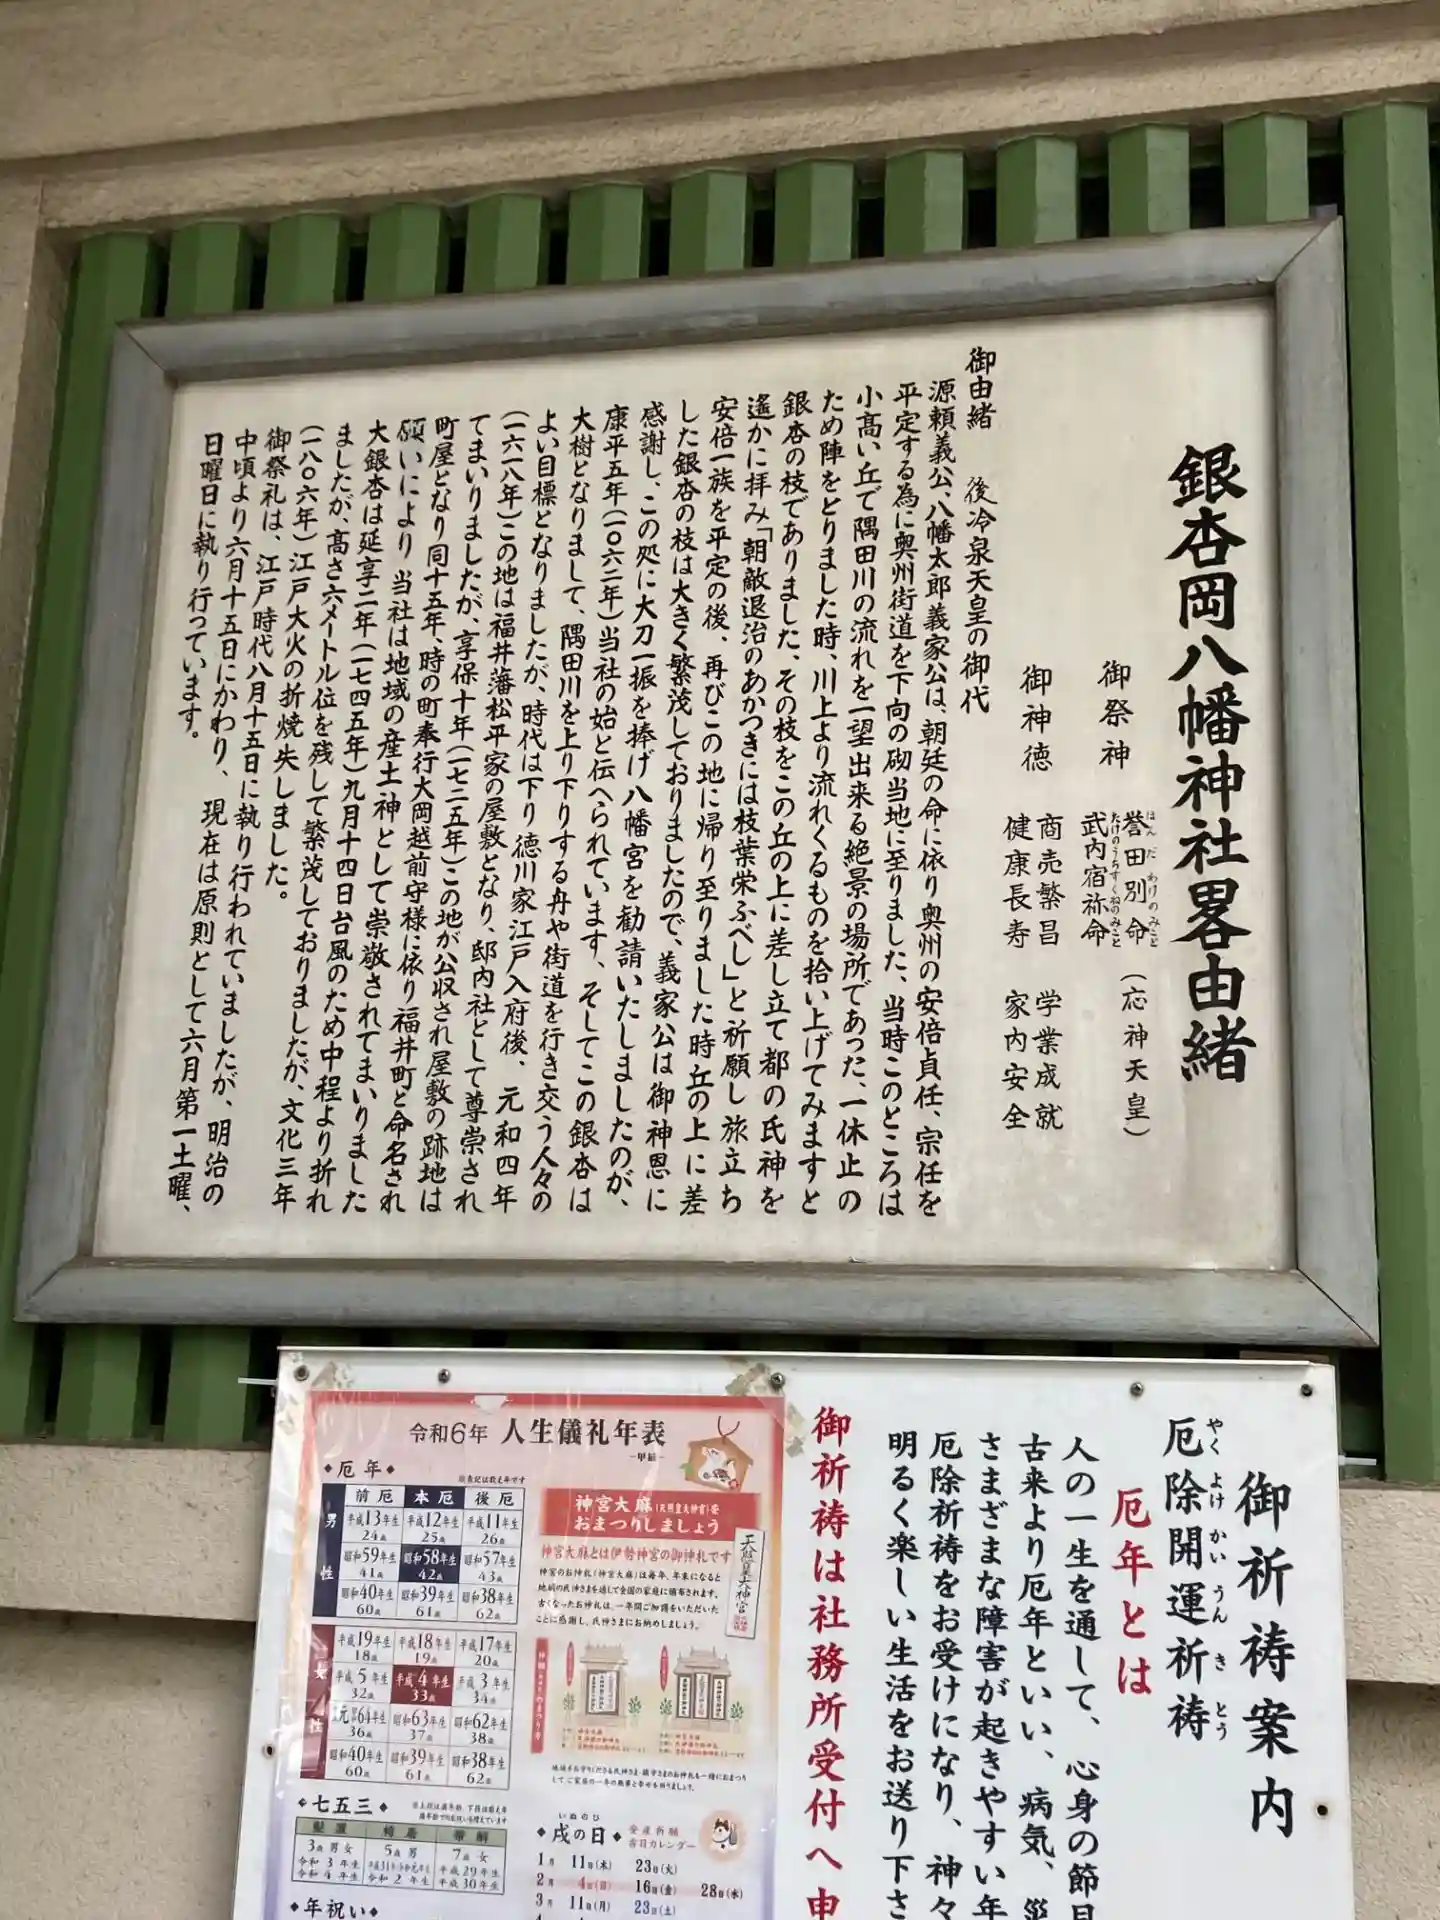 銀杏岡八幡神社畧由緒
御祭神
誉田別命（応神天皇）
ほんだわけのみこと
武内宿祢命
たけのうちすくねのみこと
御神徳
商売繁昌 学業成就
健康長寿 家内安全
御由緒 後冷泉天皇の御代
源頼義公、八幡太郎義家公は、朝廷の命に依り奥州の安倍貞任、宗任を
平定する為に奥州街道を下向の砌当地に至りました、当時このところは
小高い丘で隅田川の流れを一望出来る絶景の場所であった、一休止の
ため陣をとりました時、川上より流れくるものを拾い上げてみますと
銀杏の枝でありました、その枝をこの丘の上に差し立て都の氏神を
遙かに拝み「朝敵退治のあかつきには枝葉栄ふべし」と祈願し旅立ち
安倍一族を平定の後、再びこの地に帰り至りました時丘の上に差
した銀杏の枝は大きく繁茂しておりましたので、義家公は御神恩に
感謝し、この処に大刀一振を捧げ八幡宮を勧請いたしましたのが、
康平五年（一〇六二年）当社の始と伝へられています、そしてこの銀杏は
大樹となりまして、隅田川を上り下りする舟や街道を行き交う人々の
よい目標となりましたが、時代は下り徳川家江戸入府後、元和四年
（一六一八年）この地は福井藩松平家の屋敷となり、邸内社として尊崇され
てまいりましたが、享保十年（一七二五年）この地が公収され屋敷の跡地は
町屋となり同十五年、時の町奉行大岡越前守様に依り福井町と命名され
願いにより 当社は地域の産土神として崇敬されてまいりました
大銀杏は延享二年（一七四五年）九月十四日台風のため中程より折れ
ましたが、高さ六メートル位を残して繁茂しておりましたが、文化三年
（一八〇六年）江戸大火の折焼失しました。
御祭礼は、江戸時代八月十五日に執り行われていましたが、明治の
中頃より六月十五日にかわり、現在は原則として六月第一土曜、
日曜日に執り行っています。
御祈祷案内
厄除開運祈祷
やくよけかいうんきとう
厄年とは
人の一生を通して、心身の節目
古来より厄年といい、病気、災
さまざまな障害が起きやすい年
厄除祈祷をお受けになり、神々
明るく楽しい生活をお送り下さ
御祈祷は社務所受付へ申
令和6年 人生儀礼年表
―甲辰―
◆厄年◆
※表記は数え年です
前厄 本厄 後厄
男性
平成13年生 平成12年生 平成11年生
24歳 25歳 26歳
昭和59年生 昭和58年生 昭和57年生
41歳 42歳 43歳
昭和40年生 昭和39年生 昭和38年生
60歳 61歳 62歳
女性
平成19年生 平成18年生 平成17年生
18歳 19歳 20歳
平成5年生 平成4年生 平成3年生
32歳 33歳 34歳
昭和63年生 昭和62年生
36歳 37歳 38歳
昭和40年生 昭和39年生 昭和38年生
60歳 61歳 62歳
神宮大麻（天照皇大神宮）を
おまつりしましょう
天照皇大神宮
神宮大麻とは伊勢神宮の御神札です
神宮のお神札（神宮大麻）は毎年、年末になると
地域の氏神さまを通して全国の家庭に頒布されます。
古くなったお神札は、一年間ご加護をいただいた
ことに感謝し、氏神さまにお納めしましょう。
◆七五三◆
髪置 袴着 帯解
3歳男女 5歳男 7歳女
令和3年生 平成31年/令和元年生 平成29年生
令和4年生 令和2年生 平成30年生
◆年祝い◆
いぬのひ
◆戌の日◆
安産祈願
吉日カレンダー
1月 11日(木) 23日(火)
2月 4日(日) 16日(金) 28日(水)
3月 11日(月) 23日(土)